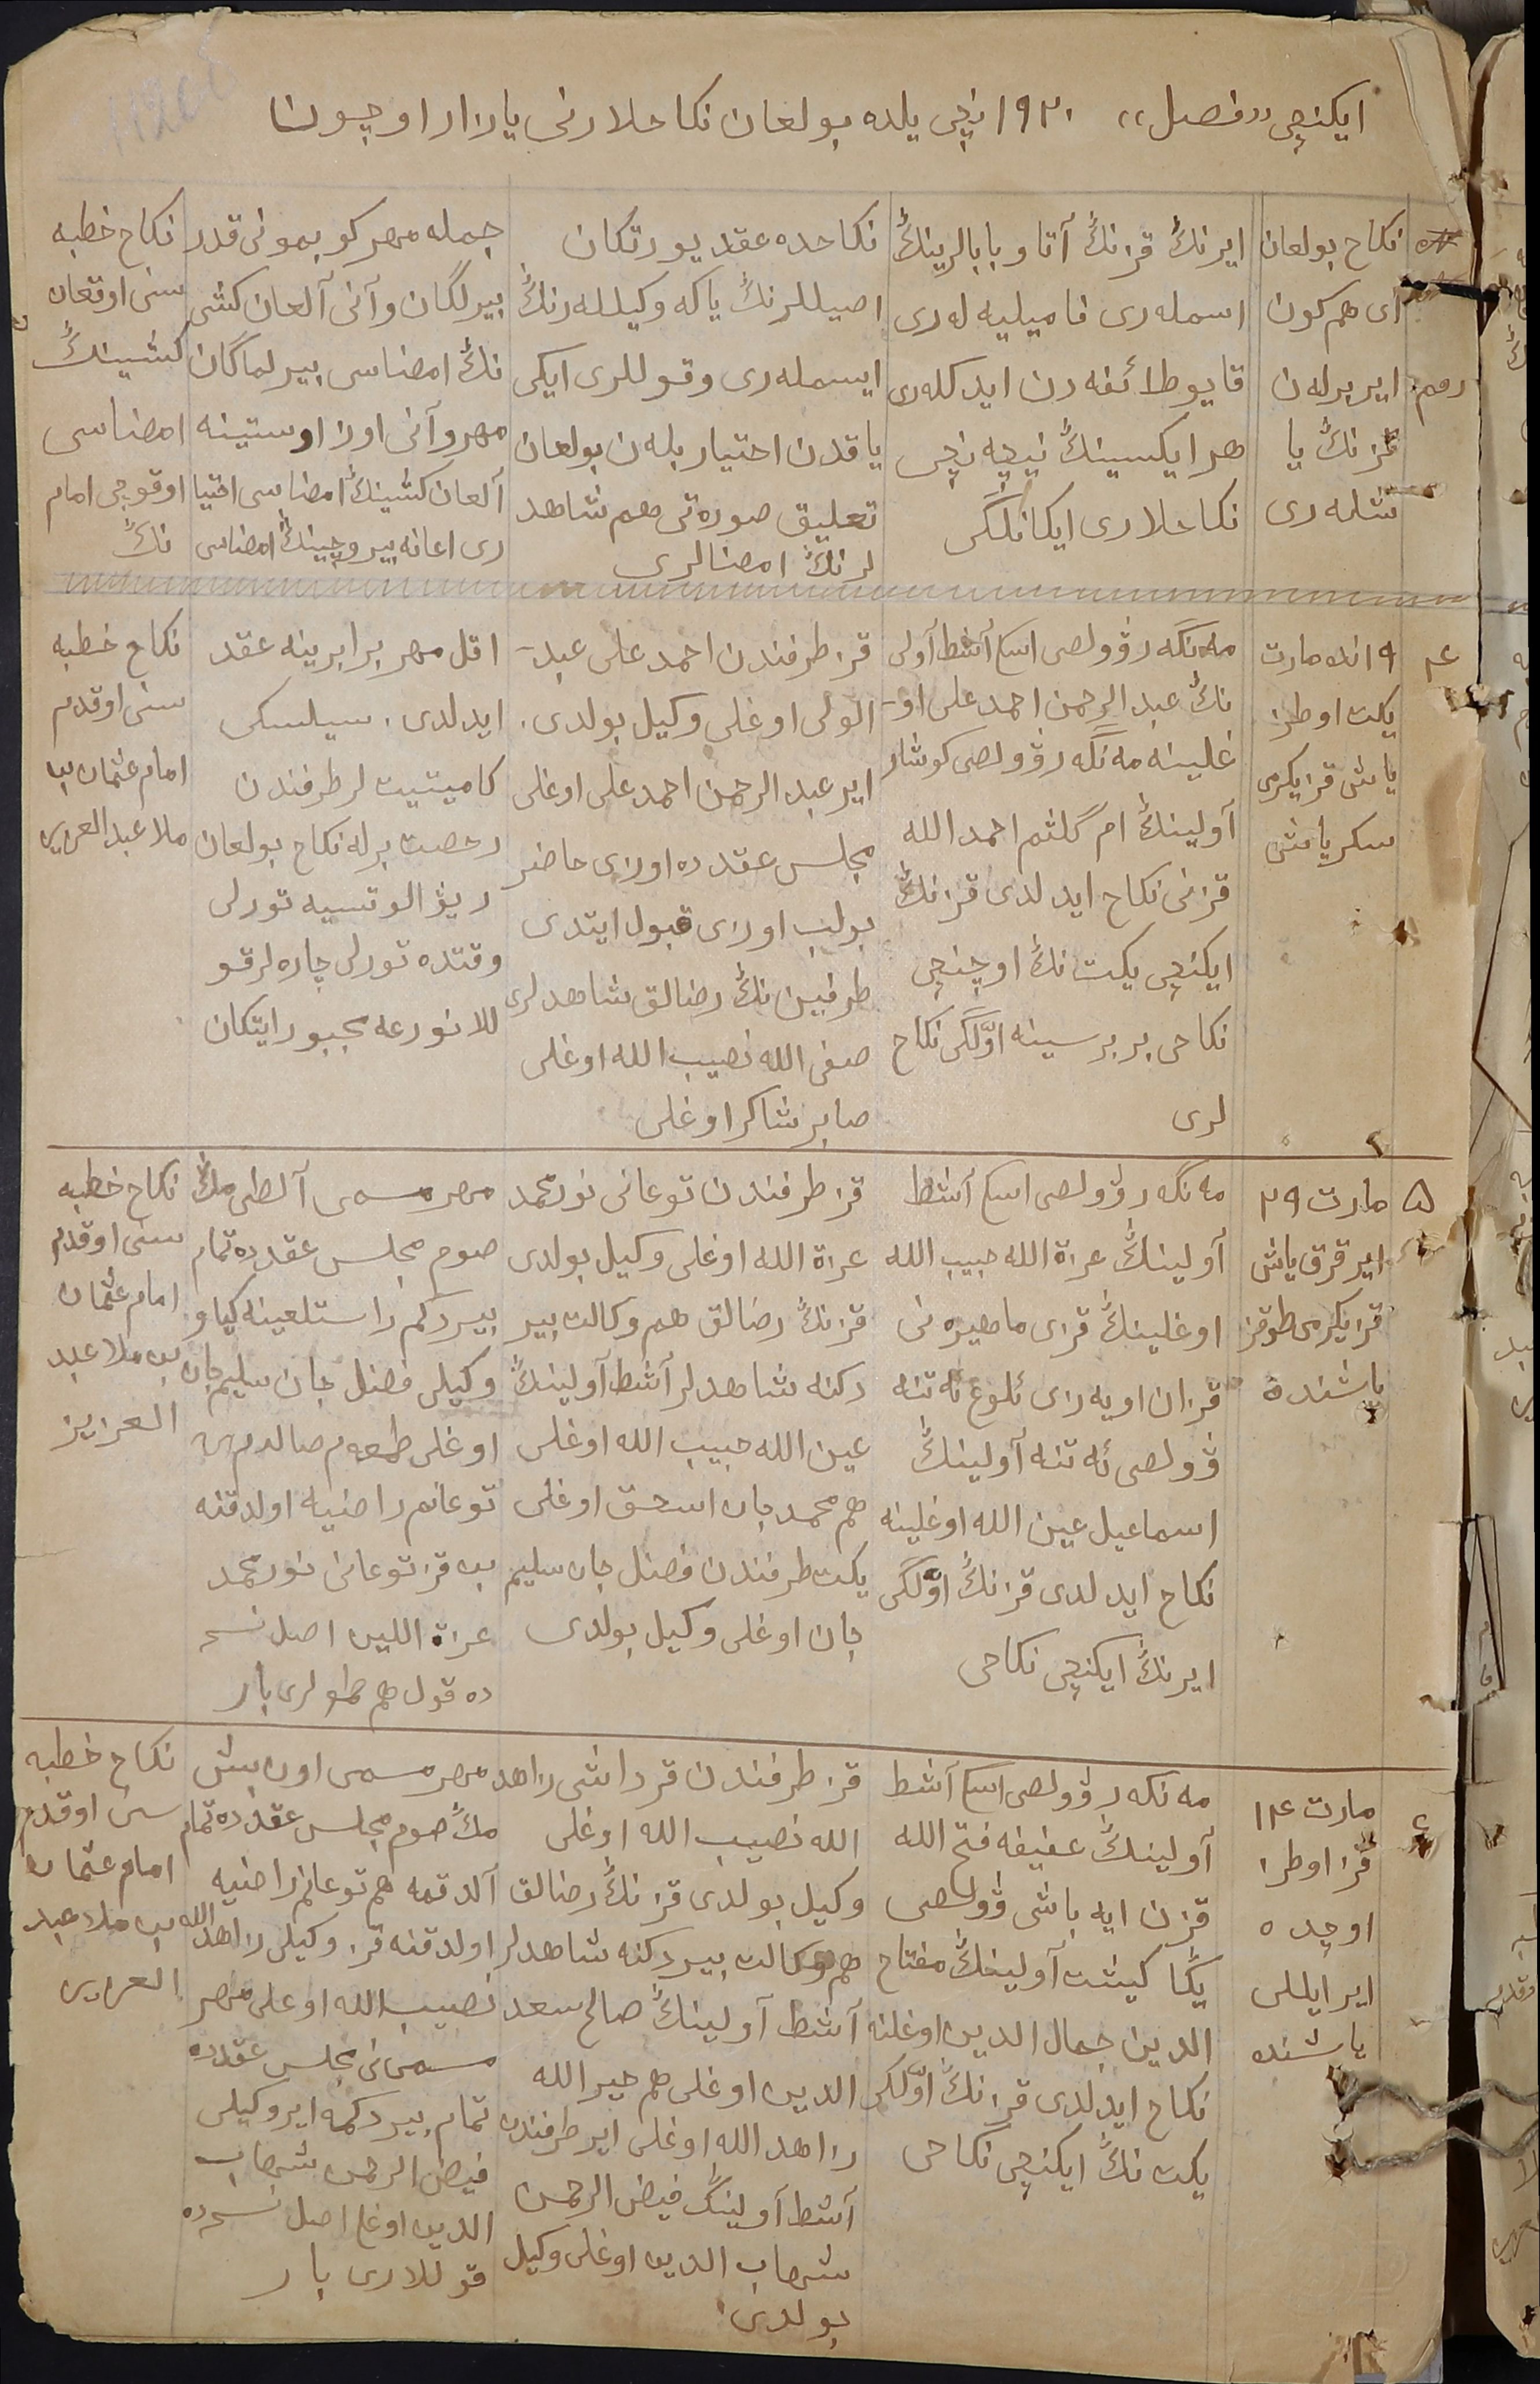 ایکنچی «فصل» ۱۹۲۰ نچی یلده بولغان نکاحلارنی یازار اوچون
رقم
نکاح بولغان
ای هم کون
ایر برله ن
قزنڭ یا
شله ری
ایرنڭ قزنڭ آتا و بابالرینڭ
اسمله ری فامیلیه له ری
قایو طائفه دن ایدکله ری
هر ایکسینڭ نیچه نچی
نکاحلاری ایکانلگی
نکاحده عقد یورتکان
اصیللرنڭ یاکه وکیلله رنڭ
ایسمله ری و قوللری ایکی
یاقدن احتیار بله ن بولغان
تعلیق صوره تی هم شاهد
لرنڭ امضالری
جمله مهر کو بمونی قدر
بیرلگان و آنی آلغان کشی
نڭ امضاسی بیرلماگان
مهر و آنی اوز اوستینه
آلغان کشینڭ امضاسی اختیا
ری اعانه بیروچینڭ امضاسی
نکاح خطبه
سنی اوقغان
کشینڭ
امضاسی
اوقوچی امام
نڭ
۴
۱۹ نده مارت
یکت اوطز
یاش قز یکرمی
سکز یاش
مه نگه ر ۋولصی اسکی آشط آولی
نڭ عبد الرحمن احمد علی او-
غلینه مه نگه ر ۋولصی کوشار
آولینڭ ام گلثم احمد الله
قزنی نکاح ایدلدی قزنڭ
ایکنچی یکت نڭ اوچنچی
نکاحی بر برسینه اوّلگی نکاح
لری
قز طرفندن احمد علی عبد-
الولی اوغلی وکیل بولدی.
ایر عبد الرحمن احمد علی اوغلی
مجلس عقدده اوزی حاضر
بولب اوزی قبول ایتدی
طرفین نڭ رضالق شاهدلری
صفی الله نصیب الله اوغلی
صابر شاکر اوغلی
اقل مهر برابرینه عقد
ایدلدی. سیلسکی
کامیتیت لر طرفندن
رخصت برله نکاح بولغان
ریۋالوتسیه تورلی
وقتده تورلی چاره لر قو
للانورغه مجبور ایتکان
نکاح خطبه
سنی اوقدم
امام عثمان بن
ملا عبد العزیز
۵
مارت ۲۹
ایر قرق یاش
قز یکرمی طوقز
یاشنده
مه نگه ر ۋولصی اسکی آشط
آولینڭ عزة الله حبیب الله
اوغلینڭ قزی ماهیره نی
قزان اویه زی ئلوغ ئه تنه
ۋولصی ئه تنه آولینڭ
اسماعیل عین الله اوغلینه
نکاح ایدلدی قزنڭ اوّلگی
ایرنڭ ایکنچی نکاحی
قز طرفندن توغانی نورمحمد
عزة الله اوغلی وکیل بولدی
قزنڭ رضالق هم وکالت بیر
دکنه شاهدلر آشط آولینڭ
عین الله حبیب الله اوغلی
هم محمد جان اسحق اوغلی
یکت طرفندن فضل جان سلیم
جان اوغلی وکیل بولدی
مهر مسمی آلطی مڭ
صوم مجلس عقدده تمام
بیردکم راستلغینه کیاو
وکیلی فضل جان سلیم جان
اوغلی
توغانم راضیه اولدقنه
بن قز توغانی نورمحمد
عزة اللین اصل نسخه
ده قول هم طولری بار
نکاح خطبه
سنی اوقدم
امام عثمان
بن ملا عبد
العزیز
۶
مارت ۱۴
قز اوطز
اوچده
ایر ایللی
یاشنده
مه نگه ر ۋولصی اسکی آشط
آولینڭ عفیفه فتح الله
قزن ایه باشی ۋولصی
یڭا کیشت آولینڭ مفتاح
الدین جمال الدین اوغلنه
نکاح ایدلدی قزنڭ اوّلگی
یکت نڭ ایکنچی نکاحی
قز طرفندن قرداشی زاهد
الله نصیب الله اوغلی
وکیل بولدی قزنڭ رضالق
هم وکالت بیردکنه شاهدلر
آشط آولینڭ صالح سعد
الدین اوغلی هم خیر الله
زاهد الله اوغلی ایر طرفندن
آشط آولینڭ فیض الرحمن
شهاب الدین اوغلی وکیل
بولدی.
مهر مسمی اون بش
مڭ صوم مجلس عقدده تمام
آلدقمه هم توغانم راضیه
اولدقنه قز وکیلی زاهد الله
نصیب الله اوغلی مهر
مسمی نی مجلس عقدده
تمام بیردکمه ایر وکیلی
فیض الرحمن شهاب
الدین اوغلی اصل نسخه ده
قوللاری بار
نکاح خطبه
سنی اوقدم
امام عثمان
بن ملا عبد
العزیز